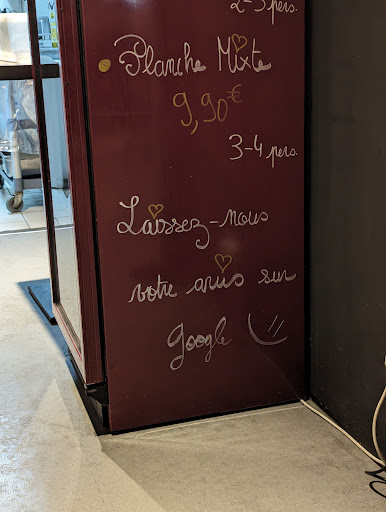 2-3 pers.
Planche Mixte
9,90€
3-4 pers.
Laissez-nous
votre avis sur
google